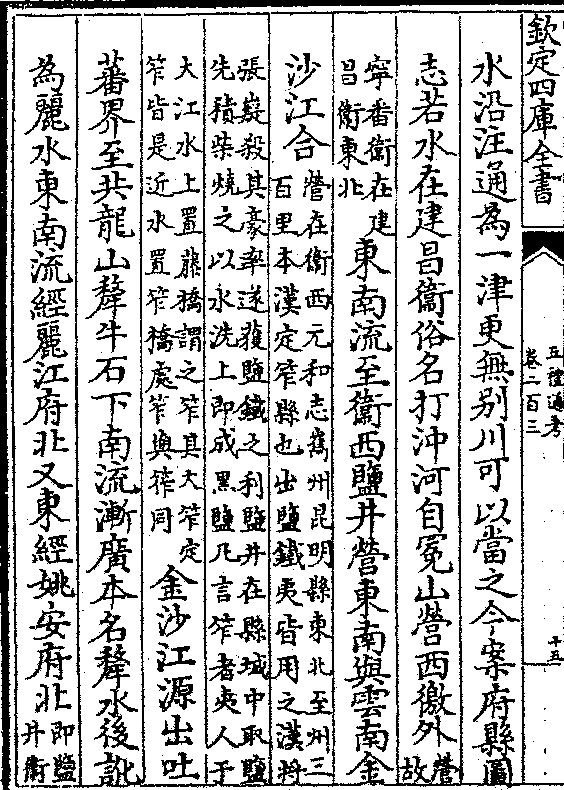 欽定四庫全書
五禮通考
卷二百三
十五
水沿注通為一津更無别川可以當之今案府縣圖
志若水在建昌衞俗名打沖河自冕山營西徼外營故
寧番衞在建昌衞東北東南流至衞西鹽井營東南與雲南金
沙江合營在衞西元和志巂州昆明縣東北至州三百里本漢定笮縣也出鹽鐵夷皆用之漢將
張嶷殺其豪率遂獲鹽鐵之利鹽井在縣城中取鹽先積柴燒之以水洗上即成黑鹽凡言笮者夷人于
大江水上置藤橋謂之笮其大笮定笮皆是近水置笮橋處笮與筰同金沙江源出吐
蕃界至共龍山犛牛石下南流漸廣本名犛水後訛
為麗水東南流經麗江府北又東經姚安府北即鹽井衞